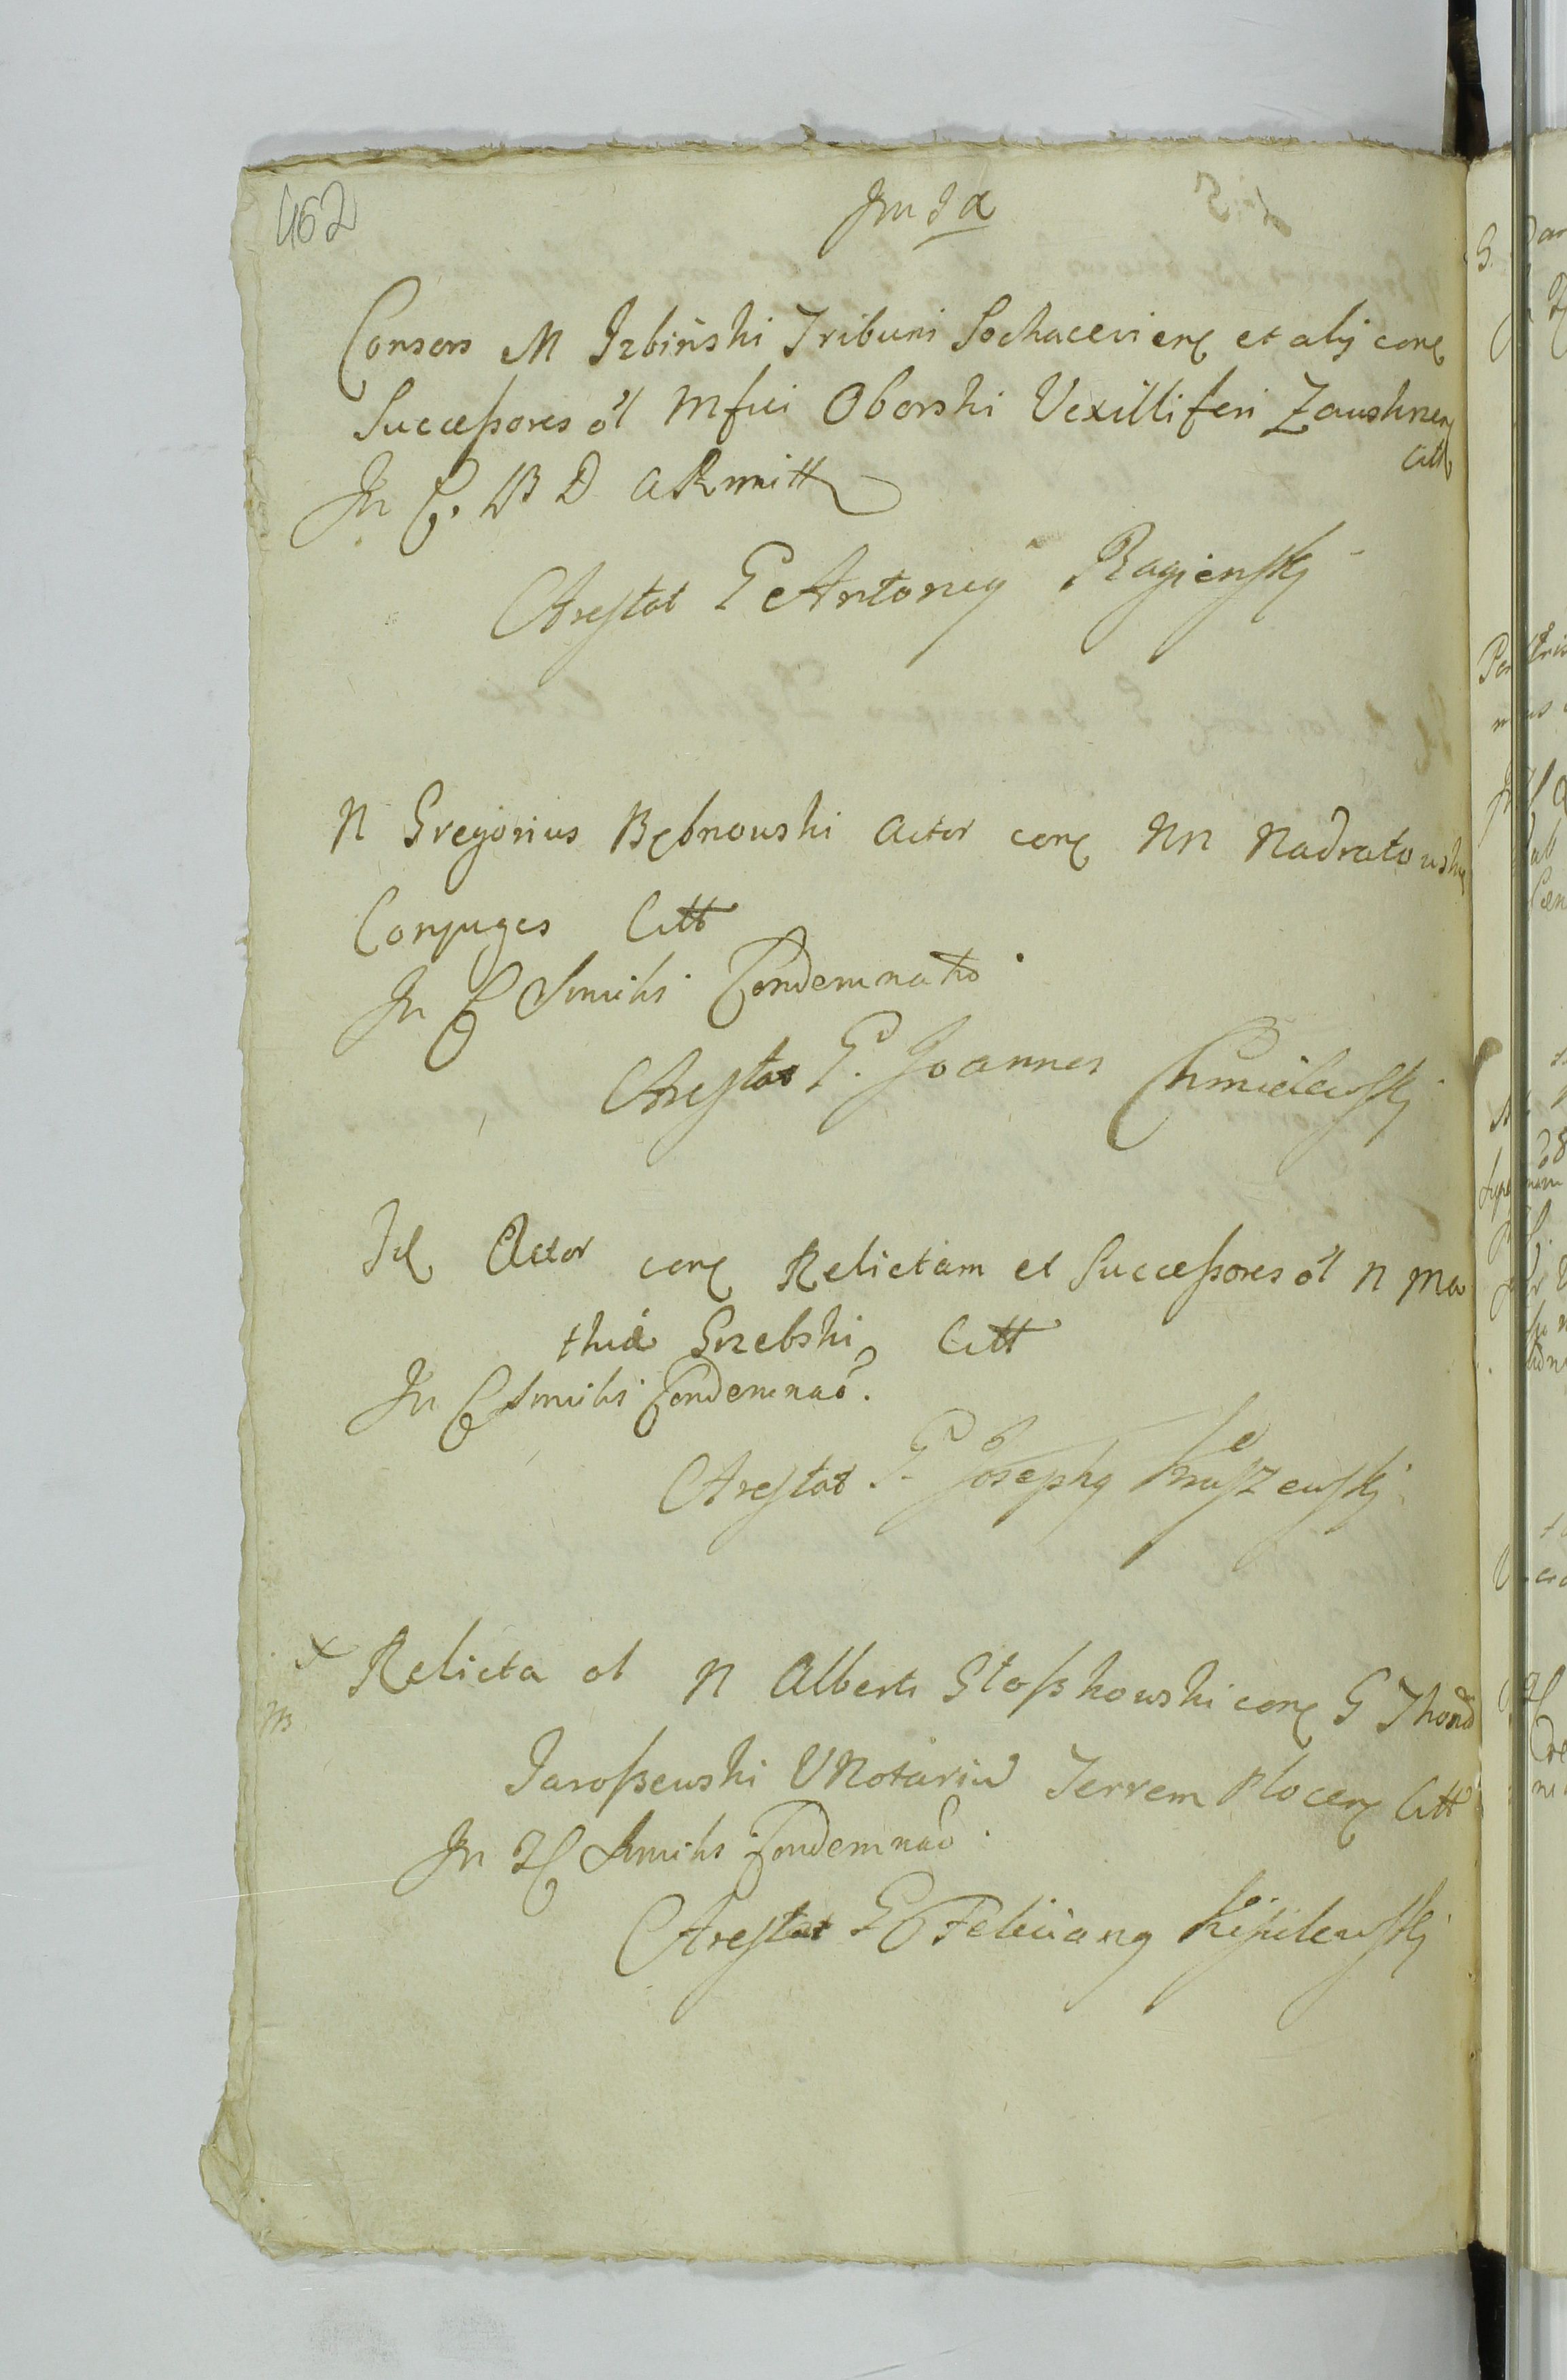 462
Consors M Izbinski Tribuni Sochaceviens et alij cons
Successores ol Mfici Oborski Vexilliferi Zauskrnens
Citt
In C. B D A Rmitt
Arestat G Antonius Ragienskj
N Gregorius Bębnowski Actor cons NN Nadratowskie
Conjuges Citt
In C Similis Condemnatio
Arestat G. Joannes Chmielewskj
Id Actor cons Relictam et Successores ol N Ma
thiæ Grzebski Citt
In C Similis Condemnao.
Arestat G. Josephus Kruszewskj
Relicta ol N Alberti Stoszkowski cons G Thomā
Jaroszewski VNotariū Terrem Plocens Citt
In Similis Condemnao.
Arestat G Felicianus Kisielewskj